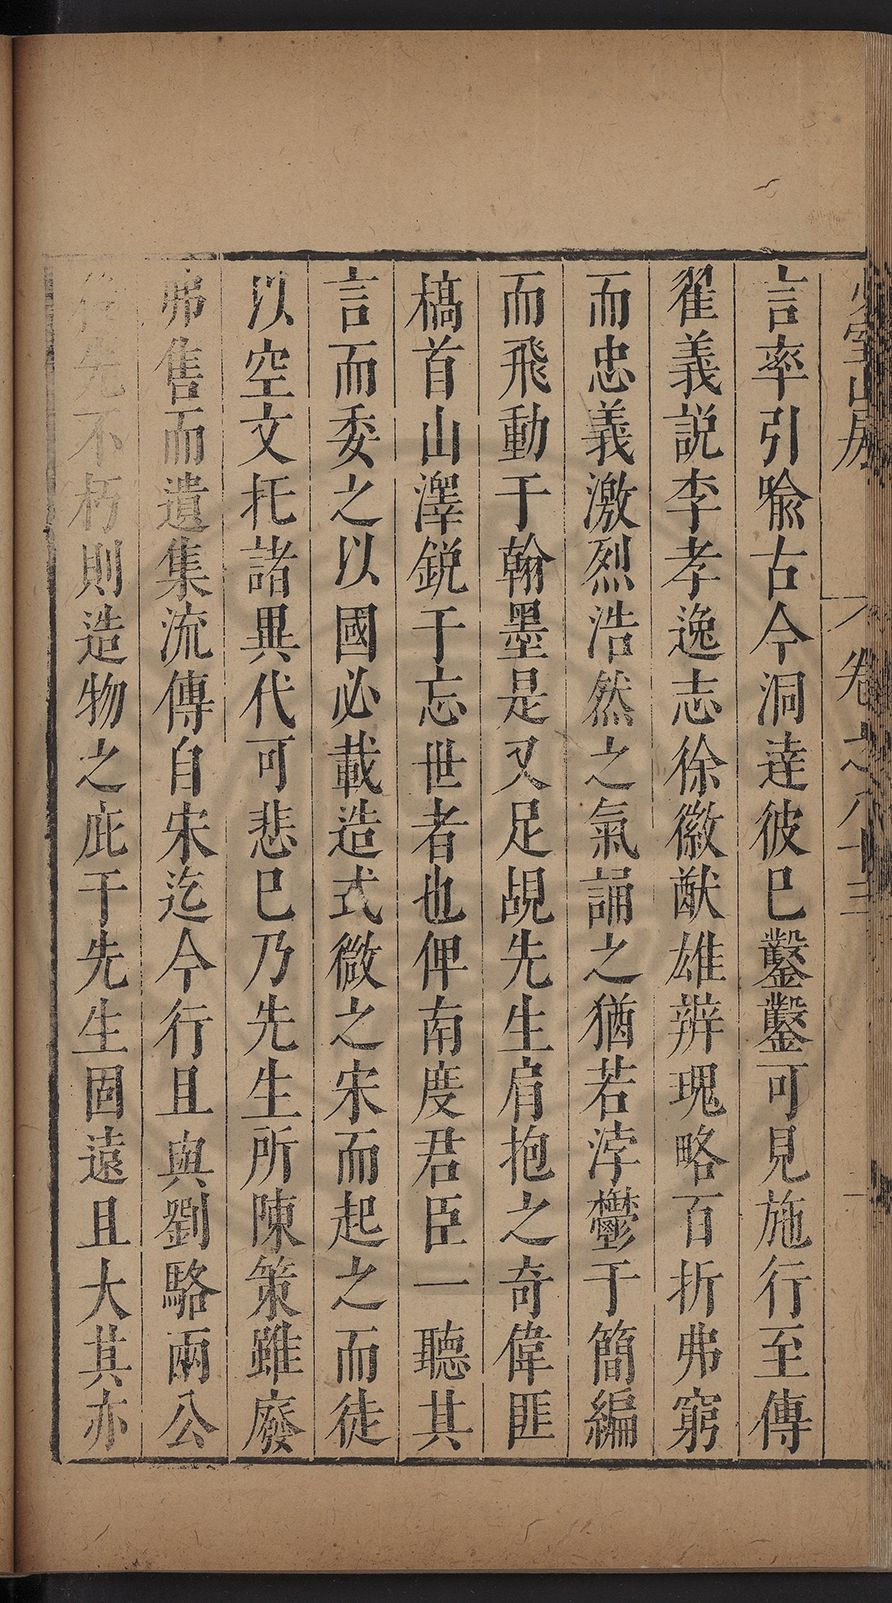 少室山房
卷之八十三
言率引喻古今洞達彼巳鑿鑿可見施行至傳
翟義說李孝逸志徐徽猷雄辨瑰略百折弗窮
而忠義激烈浩然之氣誦之猶若浡鬱于簡編
而飛動于翰墨是又足覘先生肩抱之奇偉匪
槁首山澤銳于忘世者也俾南度君臣一聽其
言而委之以國必載造式微之宋而起之而徒
以空文托諸異代可悲巳乃先生所陳策雖廢
弗售而遺集流傳自宋迄今行且與劉駱兩公
後先不朽則造物之庇于先生固遠且大其亦